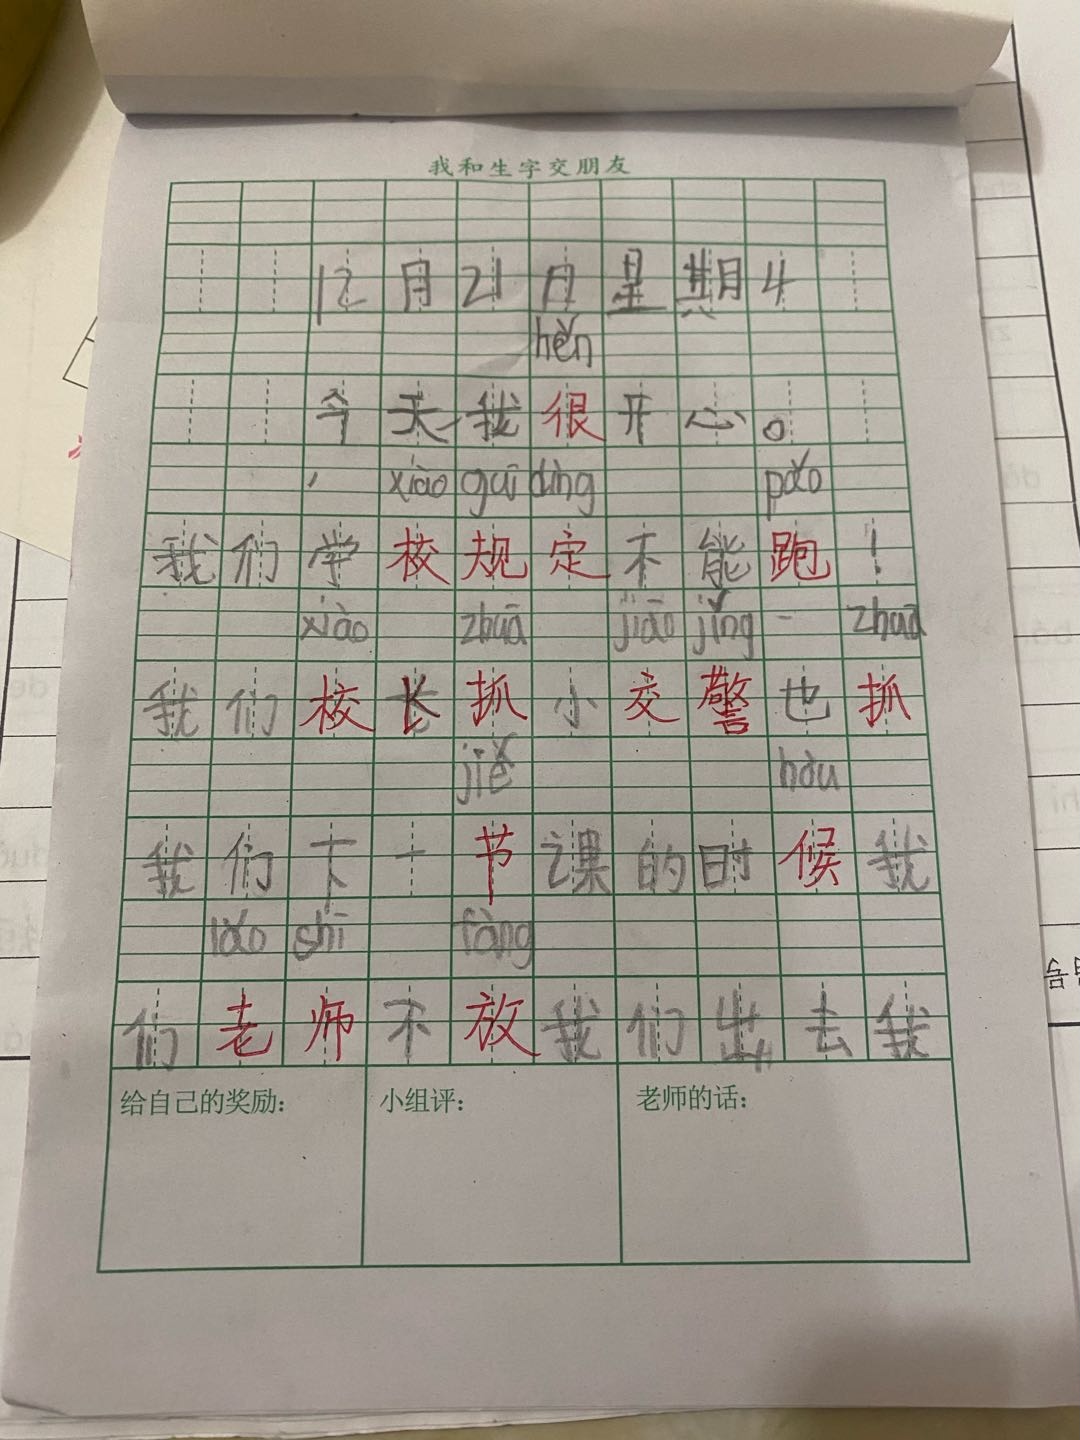 我和生字交朋友
12月21日星期4
hěn
今天我很开心。
xiào guī dìng pǎo
我们学校规定不能跑！
xiào zhuā jiāo jǐng zhuā
我们校长抓小交警也抓
jiě hòu
我们下一节课的时候我
lǎo shī fàng
们老师不放我们出去我
给自己的奖励：
小组评：
老师的话：